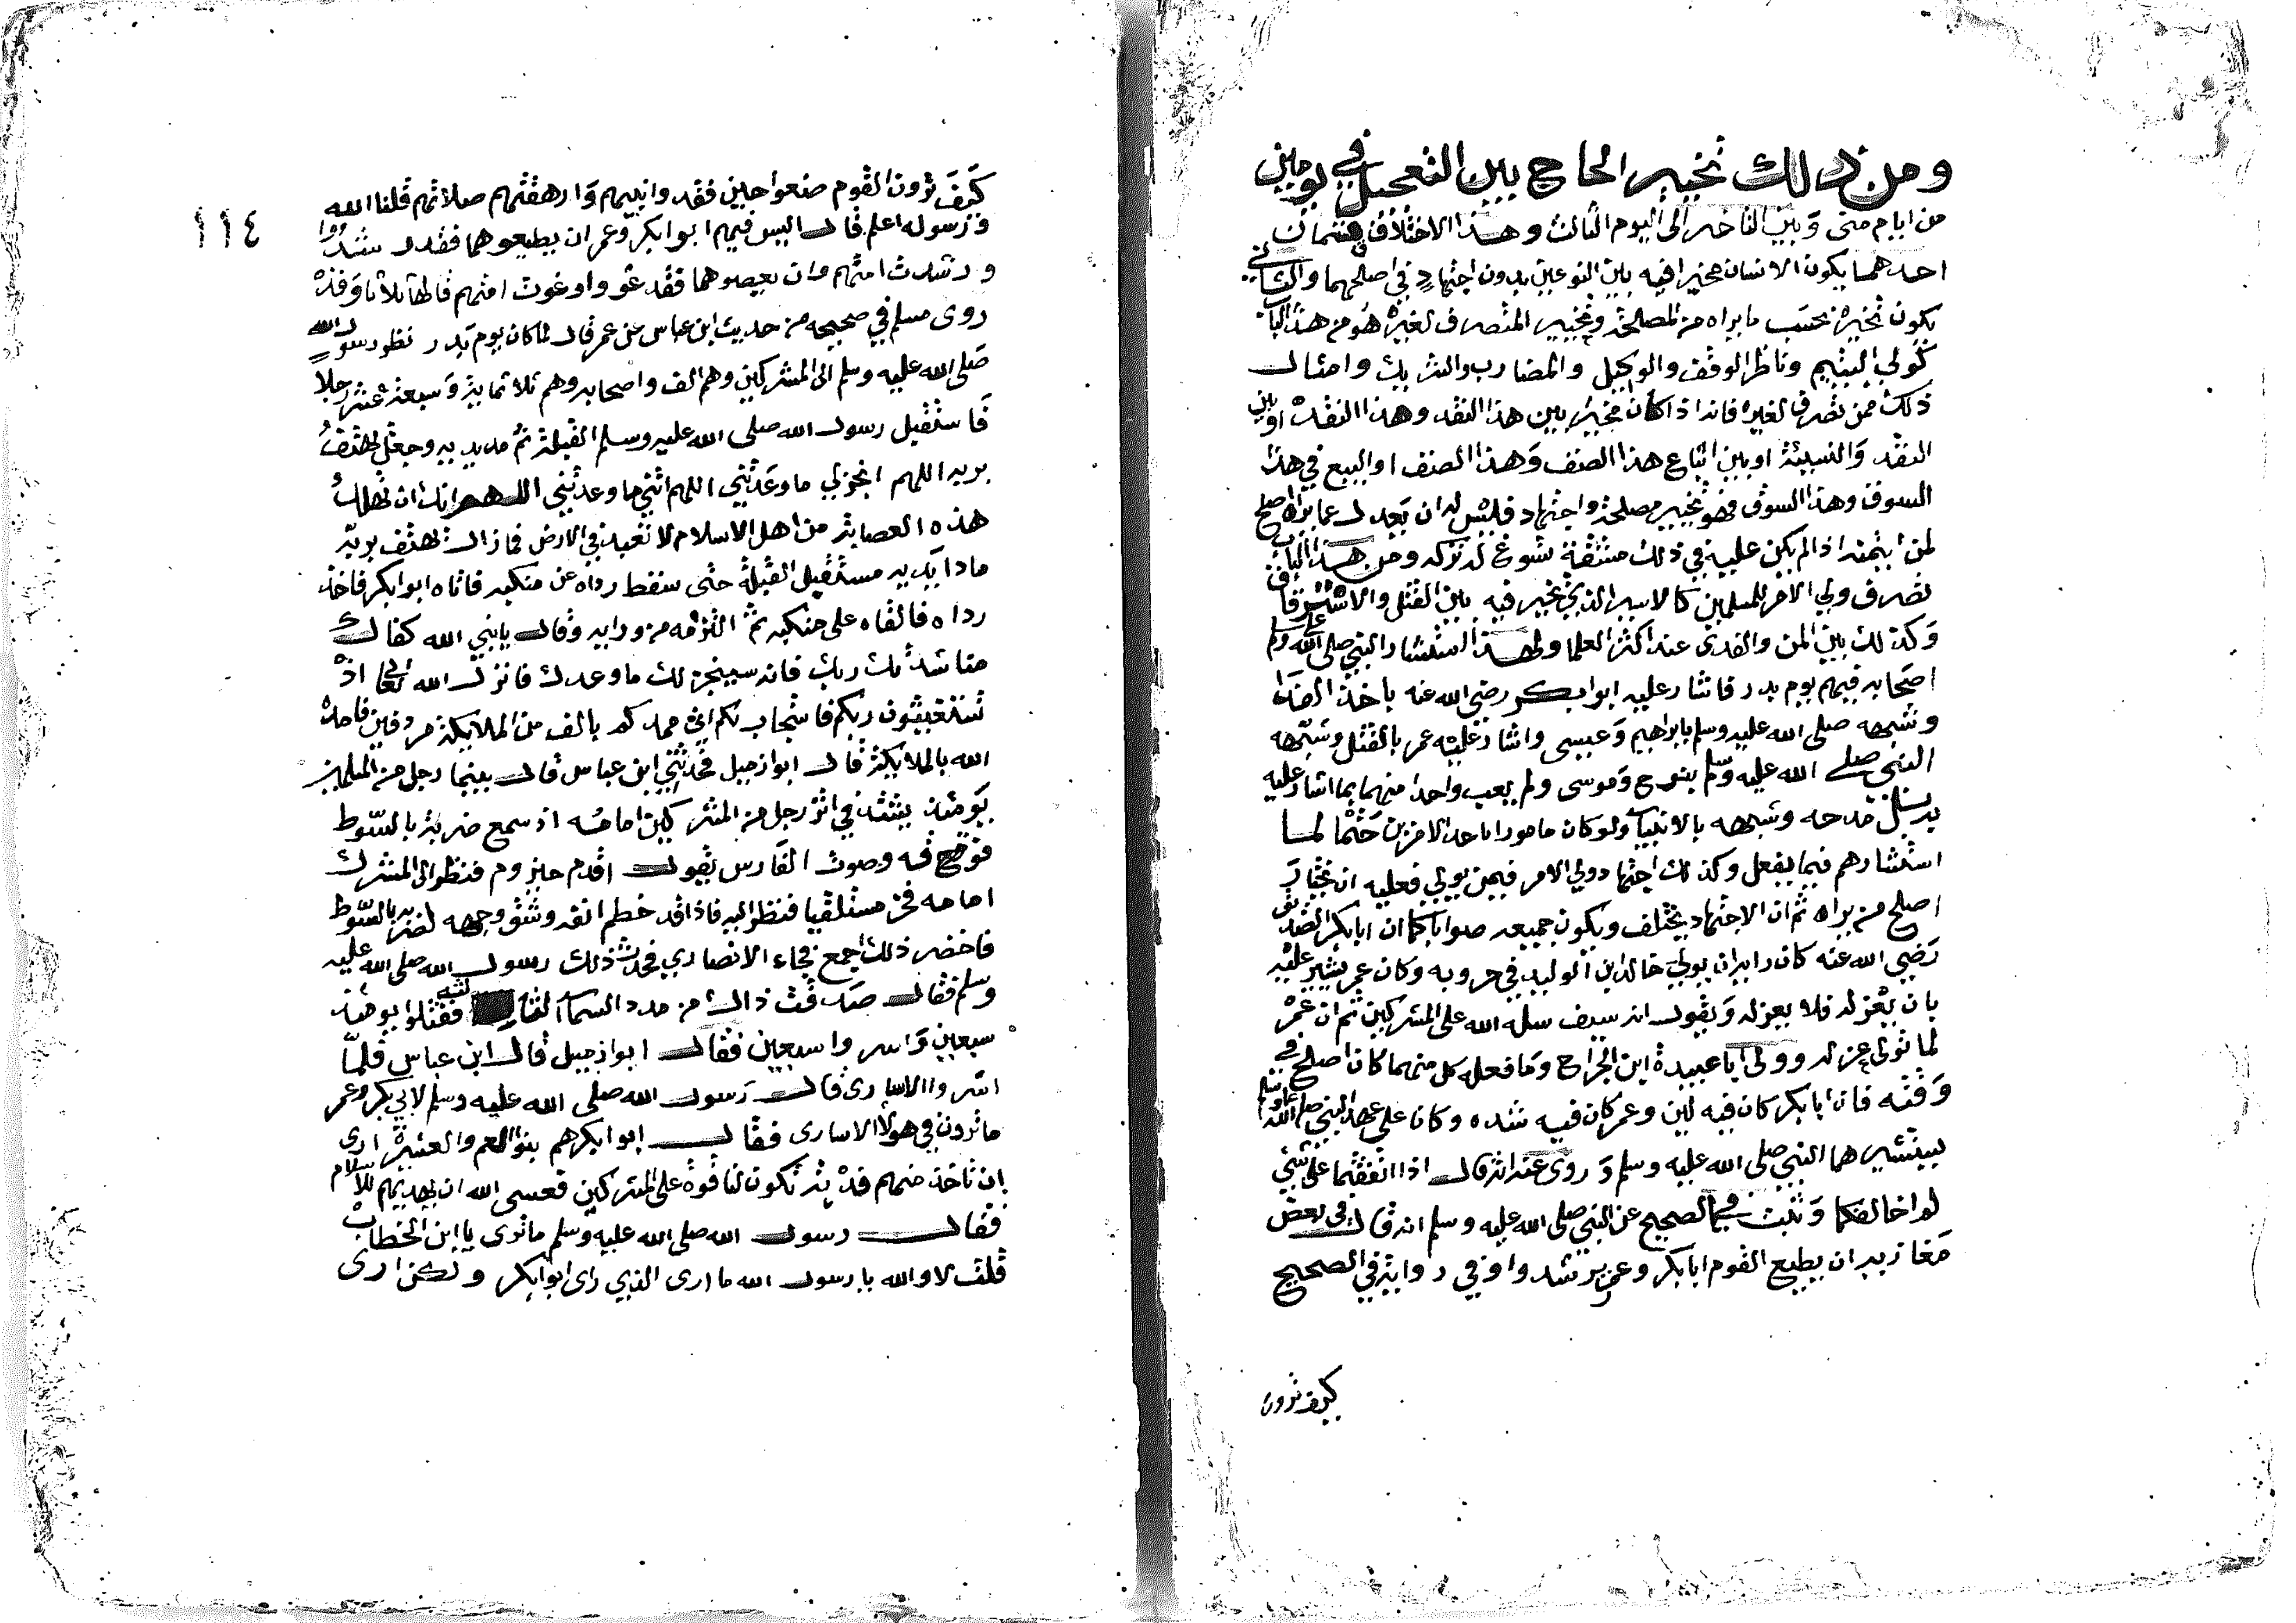 ومن ذلك تخيير الحاج بين التعجيل في يومين
من ايام منى وبين التاخير الى اليوم الثالث وهذا الاختلاف قسمان
احدهما يكون الانسان مخيرا فيه بين النوعين بدون اجتهاد في اصلحهما والثاني
يكون تخيره بحسب ما يراه من المصلحة وتخيير المتصرف لغيره هو من هذا الباب
كولي اليتيم وناظر الوقف والوكيل والمضارب والشريك وامثال
ذلك ممن تصرف لغيره فانه اذا كان مخيرا بين هذا النقد وهذا النقد او بين
النقد والنسيئة او بين ابتاع هذا الصنف وهذا الصنف او البيع في هذا
السوق وهذا السوق فهو تخيير مصلحة واجتهاد فليس له ان يعدل عما يراه اصلح
لمن ايتمنه اذا لم يكن عليه في ذلك مشقة تسوغ له تركه ومن هذا الباب
تصرف ولي الامر للمسلمين كالاسير الذي يخير فيه بين القتل والاسترقاق
وكذلك بين المن والفدى عند اكثر العلما ولهذا استشار النبي صلى الله عليه وسلم
اصحابه فيهم يوم بدر فاشار عليه ابوابكر رضي الله عنه باخذ الفدا
وشبهه صلى الله عليه وسلم بابراهيم وعيسى واشار عليه عمر بالقتل وشبهه
النبي صلى الله عليه وسلم بنوح وموسى ولم يعب واحدا منهما بما اشار عليه
به بل مدحه وشبهه بالانبيا ولو كان مامورا باحد الامرين حتما لما
استشارهم فيما يفعل وكذلك اجتهاد ولي الامر فيمن يولي فعليه ان يختار
اصلح من يراه ثم ان الاجتهاد يختلف ويكون جميعه صوابا كما ان ابابكر الصديق
رضي الله عنه كان رايه ان يولي خالد ابن الوليد في حروبه وكان عمر يشير عليه
بان يعزله فلا يعزله ويقول انه سيف سله الله على المشركين ثم ان عمر
لما تولى عزله وولى ابا عبيدة ابن الجراح وما فعله كل منهما كان اصلح في
وقته فان ابابكر كان فيه لين وعمر كان فيه شده وكانا على عهد النبي صلى الله عليه وسلم
يستشيرهما النبي صلى الله عليه وسلم وروى عنه انه قال اذا اتفقتما على شيئ
لم اخالفكما وثبت في الصحيح عن النبي صلى الله عليه وسلم انه قال في بعض
مغازيه ان يطيع القوم ابابكر وعمر يرشدوا وفي رواية في الصحيح
كيف ترون
١١٤
كيف ترون القوم صنعوا حين فقدوا نبيهم وارهقتهم صلاتهم قلنا الله
ورسوله اعلم قال اليس فيهم ابوابكر وعمر ان يطيعوهما فقد رشدوا
ورشدت امتهم وان يعصوهما فقد غووا وغوت امتهم قالها ثلاثا وقد
روى مسلم في صحيحه من حديث ابن عباس عن عمر قال لما كان يوم بدر نظر رسول الله
صلى الله عليه وسلم الى المشركين وهم الف واصحابه وهم ثلاثماية وسبعة عشر رجلا
فاستقبل رسول الله صلى الله عليه وسلم القبلة ثم مد يديه وجعل يهتف
بربه اللهم انجزلي ما وعدتني اللهم اتني ما وعدتني اللهم انك ان تهلك
هذه العصابة من اهل الاسلام لا تعبد في الارض فما زال يهتف بربه
مادا يديه مستقبل القبلة حتى سقط رداه عن منكبيه فاتاه ابوابكر فاخذ
رداه فالقاه على منكبيه ثم التزمه من ورايه وقال يا نبي الله كفاك
مناشدتك ربك فانه سينجز لك ما وعدك فانزل الله تعالى اذ
تستغيثون ربكم فاستجاب لكم اني ممدكم بالف من الملايكة مردفين فامده
الله بالملايكة قال ابوازميل فحدثني ابن عباس قال بينما رجل من المسلمين
يومئذ يشتد في اثر رجل من المشركين امامه اذ سمع ضربة بالسوط
فوقه وصوت الفارس يقول اقدم حيزوم فنظر الى المشرك
امامه فخر مستلقيا فنظر اليه فاذا قد خطم انفه وشق وجهه لضربه بالسوط
فاخضر ذلك اجمع فجاء الانصاري فحدث ذلك رسول الله صلى الله عليه
وسلم فقال صدقت ذلك من مدد السما الثالثه فقتلوا يومئذ
سبعين واسروا سبعين فقال ابوازميل قال ابن عباس فلما
اسروا الاسارى قال رسول الله صلى الله عليه وسلم لابي بكر وعمر
ما ترون في هولا الاسارى فقال ابوابكر هم بنوا العم والعشيرة ارى
ان تاخذ منهم فدية تكون لنا قوة على المشركين فعسى الله ان يهديهم للاسلام
فقال رسول الله صلى الله عليه وسلم ما ترى يا ابن الخطاب
قلت لا والله يا رسول الله ما ارى الذي راى ابوابكر ولكن ارى